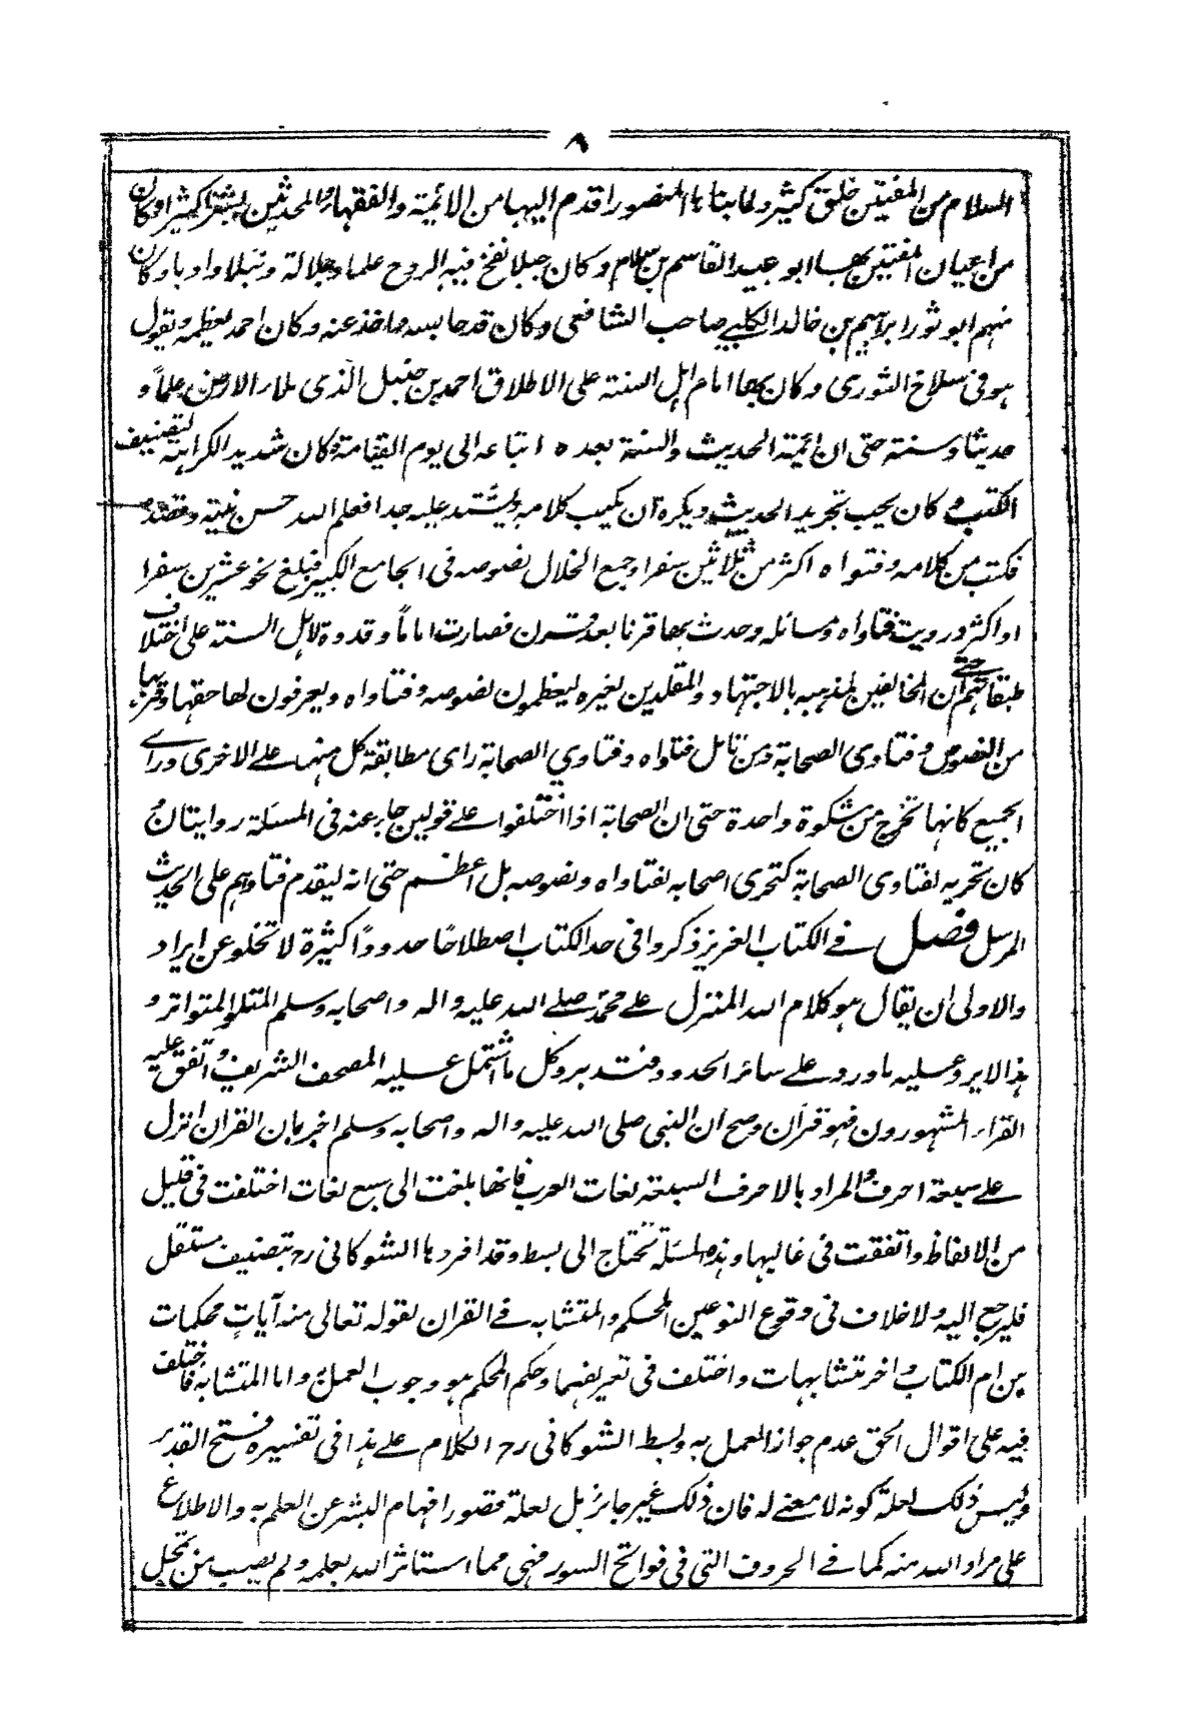 ٨
السلام من المفتين خلق كثير ولما بناها المنصور اقدم اليها من الائمة والفقهاء والمحدثين بشرا كثيرا وكان
من اعيان المفتين بها ابو عبيد القاسم بن سلام وكان جبلا نفخ فيه الروح علما وجلالة ونبلا وادبا وكان
منهم ابو ثور ابراهيم بن خالد الكلبي صاحب الشافعى وكان قد جالسه واخذ عنه وكان احمد يعظمه ويقول
هو فى سلاخ الثورى وكان بها امام اهل السنة على الاطلاق احمد بن حنبل الذى ملأ الارض علماً و
حديثا وسنة حتى ان ائمة الحديث والسنة بعده اتباعه الى يوم القيامة وكان شديد الكراهة لتصنيف
الكتب وكان يحب تجريد الحديث ويكره ان يكتب كلامه ويشتد عليه جدا فعلم الله حسن نيته وقصده
فكتب من كلامه وفتواه اكثر من ثلاثين سفرا وجمع الخلال نصوصه فى الجامع الكبير فبلغ نحو عشرين سفرا
او اكثر ورويت فتاواه ومسائله وحدث بها قرنا بعد قرن فصارت اماماً وقدوة لاهل السنة على اختلاف
طبقاتهم حتى ان المخالفين لمذهبه بالاجتهاد والمقلدين لغيره ليعظمون نصوصه وفتاواه ويعرفون لها حقها وقربها
من النصوص وفتاوى الصحابة ومن تامل فتاواه وفتاوي الصحابة راى مطابقة كل منهما على الاخرى وراى
الجميع كانها تخرج من مشكوة واحدة حتى ان الصحابة اذا اختلفوا على قولين جاء عنه فى المسئلة روايتان
كان تحريه لفتاوى الصحابة كتحرى اصحابه لفتاواه ونصوصه بل اعظم حتى انه ليقدم فتاويهم على الحديث
المرسل فصل فى الكتاب العزيز ذكروا فى حد الكتاب اصطلاحًا حدودًا كثيرة لا تخلو عن ايراد
والاولى ان يقال هو كلام الله المنزل على محمد صلى الله عليه واله واصحابه وسلم المتلو المتواتر و
هذا لا يرد عليه ما ورد على سائر الحدود فتدبر وكل ما اشتمل عليه المصحف الشريف واتفق عليه
القراء المشهورون فهو قرآن وصح ان النبى صلى الله عليه واله واصحابه وسلم اخبر بان القران انزل
على سبعة احرف والمراد بالاحرف السبعة لغات العرب فانها بلغت الى سبع لغات اختلفت فى قليل
من الالفاظ واتفقت فى غالبها وهذه المسئلة تحتاج الى بسط وقد افردها الشوكانى رح بتصنيف مستقل
فليرجع اليه ولا خلاف فى وقوع النوعين المحكم والمتشابه فى القران لقوله تعالى منه آيات محكمات
هن ام الكتاب واخر متشابهات واختلف فى تعريفهما وحكم المحكم هو وجوب العمل به واما المتشابه فاختلف
فيه على اقوال الحق عدم جواز العمل به وبسط الشوكانى رح الكلام على هذا فى تفسيره فتح القدير
وليس ذلك لعلة كونه لا معنى له فان ذلك غير جائز بل لعلة قصور افهام البشر عن العلم به والاطلاع
على مراد الله منه كما فى الحروف التى فى فواتح السور فهى مما استاثر الله بعلمه ولم يصب من تمحل